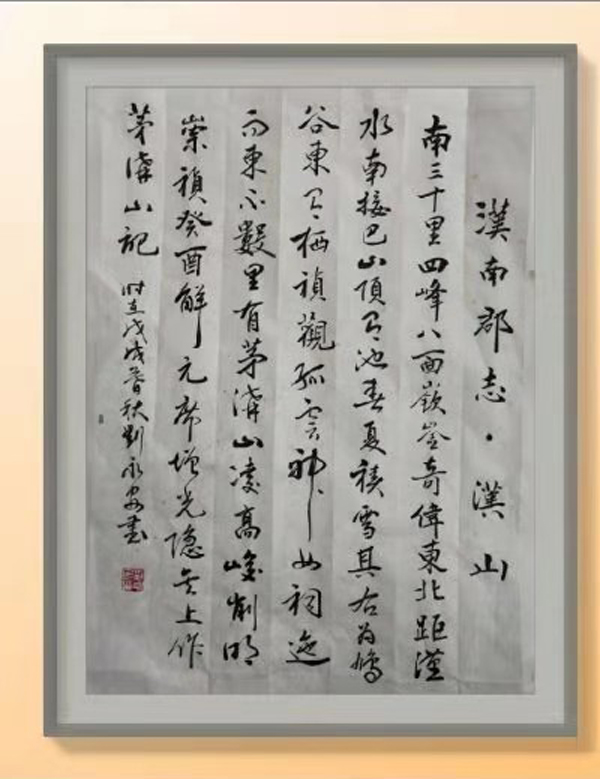 漢南郡志·漢山
南三十里四峰八面嶔崟奇偉東北距漢
水南接巴山頂有池春夏積雪其右為鳩
谷東有栖禎觀孤雲神女祠迤
而東不數里有茅溝山凌高峻削明
崇禎癸酉解元席增光隐其上作
茅溝山記
时在戊戌暮秋劉永安書